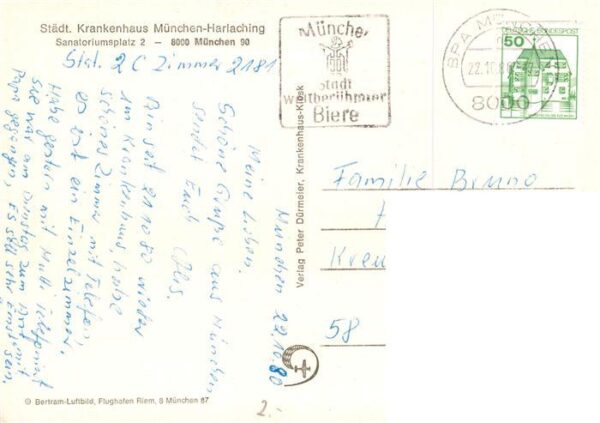 Städt. Krankenhaus München-Harlaching
Sanatoriumsplatz 2 – 8000 München 90
Stat. 2C Zimmer 2181
München 22.10.80
Meine Lieben.
Schöne Grüße aus München
sendet Euch
Bin seit 21 10 80 wieder
im Krankenhaus, habe
schönes Zimmer mit Telefon,
es ist ein Einzelzimmer.
Habe gestern mit Mutti telefoniert
Sie war am Dienstag zum Arzt mit
Papa gegangen, Es soll sehr Ernst sein.
Verlag Peter Dürmeier, Krankenhaus-Kiosk
© Bertram-Luftbild, Flughafen Riem, 8 München 87
2.-
München
Stadt
weltberühmter
Biere
BPA MÜNCHEN
22.10.8
8000
50
DEUTSCHE BUNDESPOST
Familie Bruno
Kreu
58